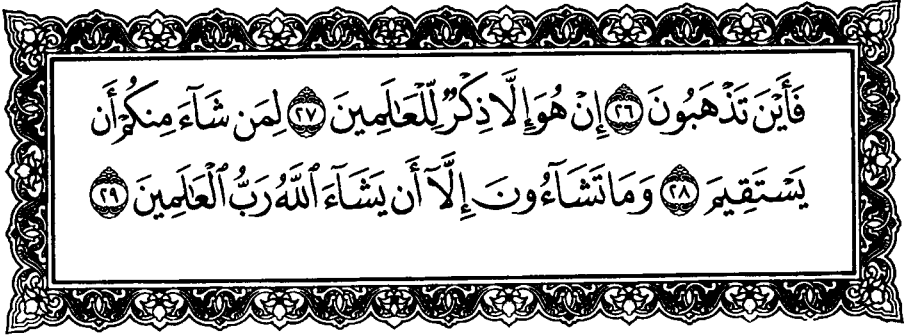 فَأَيْنَ تَذْهَبُونَ ٢٦ إِنْ هُوَ إِلَّا ذِكْرٌ لِّلْعَـٰلَمِينَ ٢٧ لِمَن شَآءَ مِنكُمْ أَن
يَسْتَقِيمَ ٢٨ وَمَا تَشَآءُونَ إِلَّآ أَن يَشَآءَ ٱللَّهُ رَبُّ ٱلْعَـٰلَمِينَ ٢٩